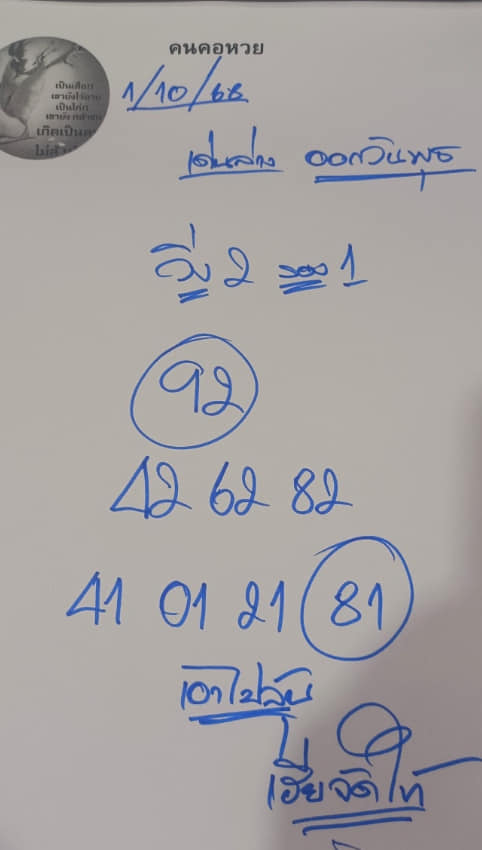 คนคอหวย
1/10/68
เป็นเสือก
เขายังไว้ลาย
เป็นไก่ก
เกิดเป็นค
เด่นล่าง ออกวันพุธ
วิ่ง 2 รอง 1
92
42 62 82
41 01 21 81
เอาไปลุ้น
เฮียจัดให้